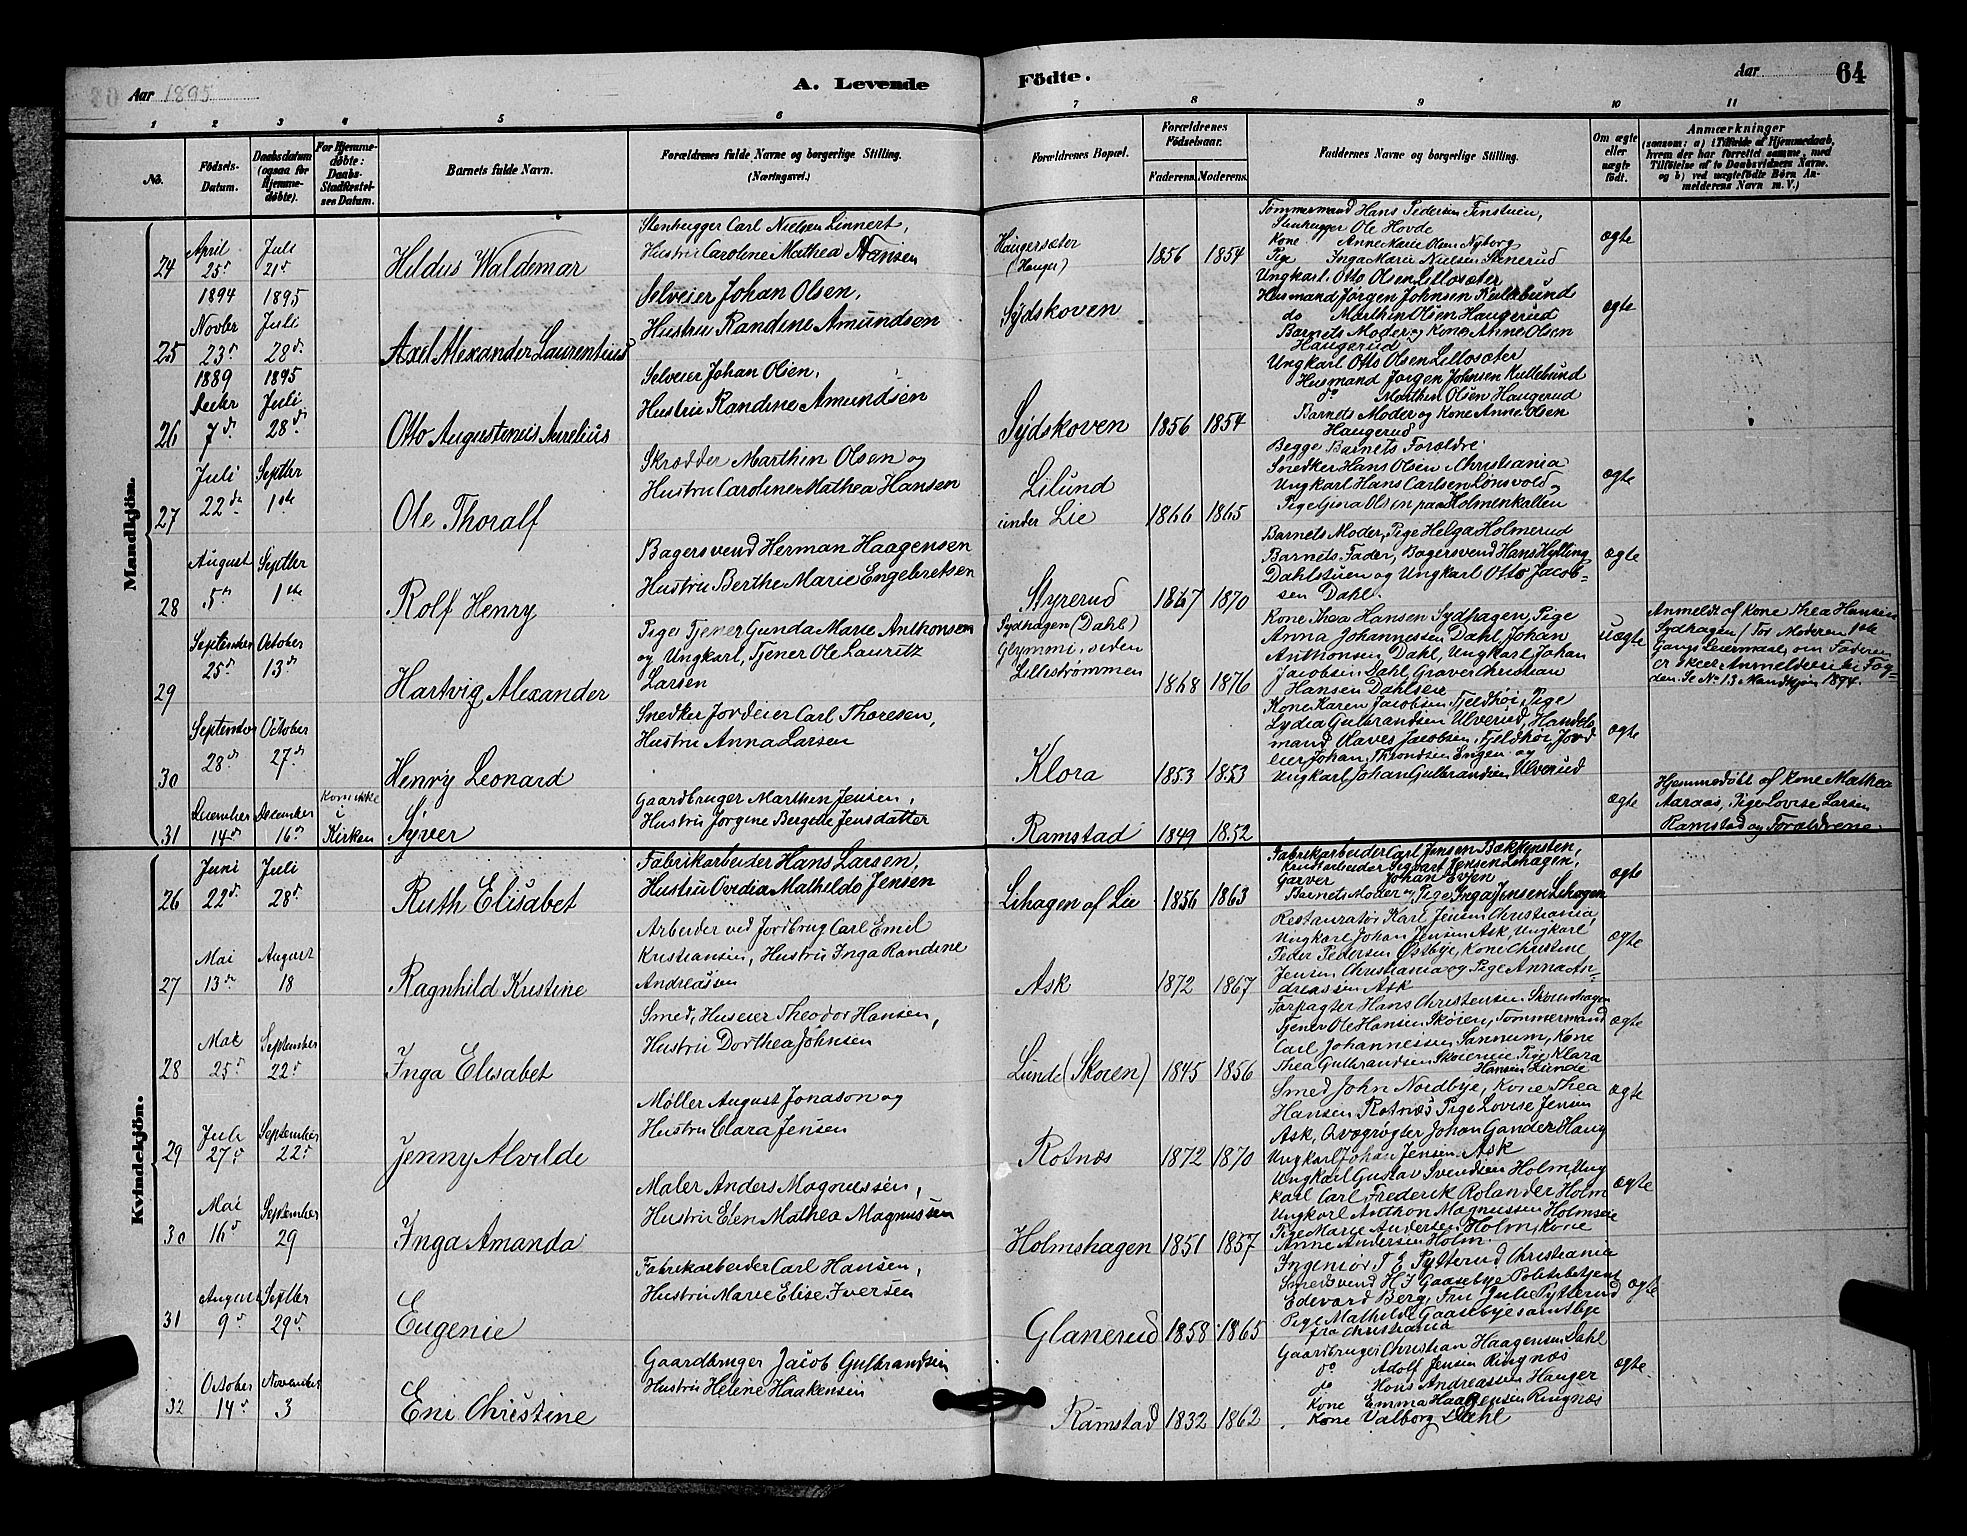 Aar 1895
A. Levende
Födte.
Aar
64
1 2 3 4 5 6 7 8 9 10 11
No.
Födsels-
Datum.
Daabsdatum
(ogsaa for
Hjemme-
døbte).
For Hjemme-
døbte:
Daabs-
Stadfæstel-
ses Datum.
Barnets fulde Navn.
Forældrenes fulde Navne og borgerlige Stilling.
(Næringsvei.)
Forældrenes Bopæl.
Forældrenes
Födselsaar.
Faderens. Moderens.
Faddernes Navne og borgerlige Stilling.
Om ægte
eller
uægte
födt.
Anmærkninger
(saasom: a) i Tilfælde af Hjemmedaab,
hvem der har forrettet samme, med
Tilföielse af to Daabsvidners Navne.
og b) ved uægtefödte Börn An-
melderens Navn m. V.)
Mandkjön.
24
April
25d
Juli
21d
Hildus Waldemar
Stenhugger Carl Nielsen Linnert,
Hustru Caroline Mathea Hansen
Haugersæter
(Hauger)
1856 1854
Tømmermand Hans Pedersen Finstuen,
Stenhugger Ole Hovde
Kone Anne Marie Olsen Nyborg
Pige Inga Marie Nielsen Stenerud
ægte
25
1894
Novbr
23d
1895
Juli
28d
Axel Alexander Laurentius
Selveier Johan Olsen,
Hustru Randine Amundsen
Sydskoven
Ungkarl Otto Olsen Lillosæter
Husmand Jørgen Johnsen Kullebund
do Marthin Olsen Haugerud
Barnets Moder og Kone Anne Olsen
Haugerud
ægte
26
1889
Decbr
7d
1895
Juli
28d
Otto Augustenius Aurelius
Selveier Johan Olsen,
Hustru Randine Amundsen
Sydskoven
1856 1854
Ungkarl Otto Olsen Lillosæter
Husmand Jørgen Johnsen Kullebund
do Marthin Olsen Haugerud
Barnets Moder og Kone Anne Olsen
Haugerud
27
Juli
22de
Septbr
1ste
Ole Thoralf
Skrædder Marthin Olsen og
Hustru Caroline Mathea Hansen
Lilund
under Lie
1866 1865
Begge Barnets Forældre
Snedker Hans Olsen Christiania
Ungkarl Hans Carlsen Lønsvold og
Pige Gina Olsen paa Holmenkallen
ægte
28
August
5te
Septbr
1ste
Rolf Henry
Bagersvend Herman Haagensen
Hustru Berthe Marie Engebretsen
Styrerud
1867 1870
Barnets Moder, Pige Helga Holmerud
Barnets Fader, Bagersvend Hans Hylling
Dahlstuen og Ungkarl Otto Jacob-
sen Dahl.
ægte
29
September
25d
October
13de
Hartvig Alexander
Pige, Tjener Gunda Marie Anthonsen
og Ungkarl, Tjener Ole Lauritz
Larsen
Sydhagen (Dahl)
Glymmi, siden
Lillestrømmen
1868 1876
Kone Thea Hansen Sydhagen, Pige
Anna Johannessen Dahl, Johan
Anthonsen Dahl, Ungkarl Johan
Jacobsen Dahl, Graver Christian
Hansen Dahlseie
uægte
Anmeldt af Kone Thea Hansen
Sydhagen / For Moderen 1ste
Gangs Leiermaal, om Faderen
er skeet Anmeldelse til Fog-
den. Se No 13 Mandkjøn 1894.
30
September
28de
October
27de
Henry Leonard
Snedker Jordeier Carl Thoresen,
Hustru Anna Larsen
Klora
1853 1853
Kone Karen Jacobsen Fjeldhøi, Pige
Lydia Gulbrandsen Ulverud, Handels
mand Olaves Jacobsen, Fjeldhøi, Jord
eier Johan Throndsen Engen og
Ungkarl Johan Gulbrandsen Ulverud
ægte
31
December
14d
December
16de
Kom ikke
i
Kirken
Syver
Gaardbruger Marthin Jensen,
Hustru Jørgine Bergette Jensdatter
Ramstad
1849 1852
ægte
Hjemmedøbt af Kone Mathea
Aaraas, Pige Lovise Larsen
Ramstad og Forældrene.
Kvindekjön.
26
Juni
22d
Juli
28d
Ruth Elisabet
Fabrikarbeider Hans Larsen,
Hustru Ovidia Mathilde Jensen
Lihagen af Lie
1856 1863
Fabrikarbeider Carl Jensen Bakkensten,
Krudtarbeider Sigvart Jensen Lihagen,
Garver Johan Even
Barnets Moder og Pige Inga Jensen Lihagen
ægte
27
Mai
13de
August
18
Ragnhild Kristine
Arbeider ved Jordbrug Carl Emil
Kristiansen, Hustru Inga Randine
Andreassen
Ask
1872 1867
Restauratør Karl Jensen Christiania,
Ungkarl Johan Jensen Ask, Ungkarl
Peder Pedersen Østbye, Kone Christine
Jensen Christiania og Pige Anna An-
dreassen Ask
ægte
28
Mai
25d
September
22d
Inga Elisabet
Smed, Huseier Theodor Hansen,
Hustru Dorthea Johnsen
Lunde (Skøien)
1845 1856
Forpagter Hans Christensen Skøienhagen
Tjener Ole Hansen Skøien, Tømmermand
Carl Johannessen Sannum, Kone
Thea Gulbrandsen Skøieneie Pige Klara
Hansen Lunde
ægte
29
Juli
27d
September
22d
Jenny Alvilde
Møller August Jonason og
Hustru Clara Jensen
Rotnæs
1872 1870
Smed John Nordbye, Kone Thea
Hansen Rotnæs Pige Lovise Jensen
Ask, Qvægrøgter Johan Gander Haug
Ungkarl Johan Jensen Ask
ægte
30
Mai
16d
September
29
Inga Amanda
Maler Anders Magnussen,
Hustru Elen Mathea Magnussen
Holmshagen
1851 1857
Ungkarl Gustav Svendsen Holm Ung
karl Carl Frederik Rolander Holm
Ungkarl Anthon Magnussen Holmseie
Pige Marie Andersen Holm, Kone
Anne Andersen Holm.
ægte
31
August
9d
Septbr
29d
Eugenie
Fabrikarbeider Carl Hansen,
Hustru Marie Elise Iversen
Glanerud
1858 1865
Ingeniør T E Sylterud Christiania
Smedsvend H J Gaasebye Politibetjent
Edevard Berg, Fru Julie Sylterud
Pige Mathilde Gaasebye samtlige
fra Christiania
ægte
32
October
14d
November
3
Eni Christine
Gaardbruger Jacob Gulbrandsen
Hustru Helene Haakensen
Ramstad
1832 1862
Gaardbruger Christian Haagensen Dahl
do Adolf Jensen Ringnæs
do Hans Andreassen Hauger
Kone Emma Haagensen Ringnæs
Kone Valborg Dahl
ægte